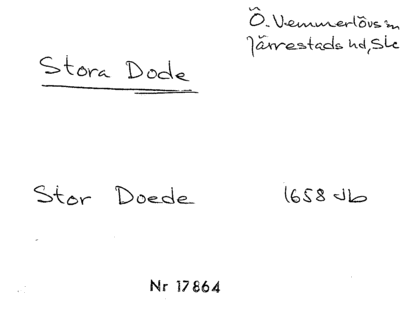 Ö. Vemmerlövs sn
Järrestads hd, Sk
Stora Dode
Stor Doede 1658 Jb
Nr 17864